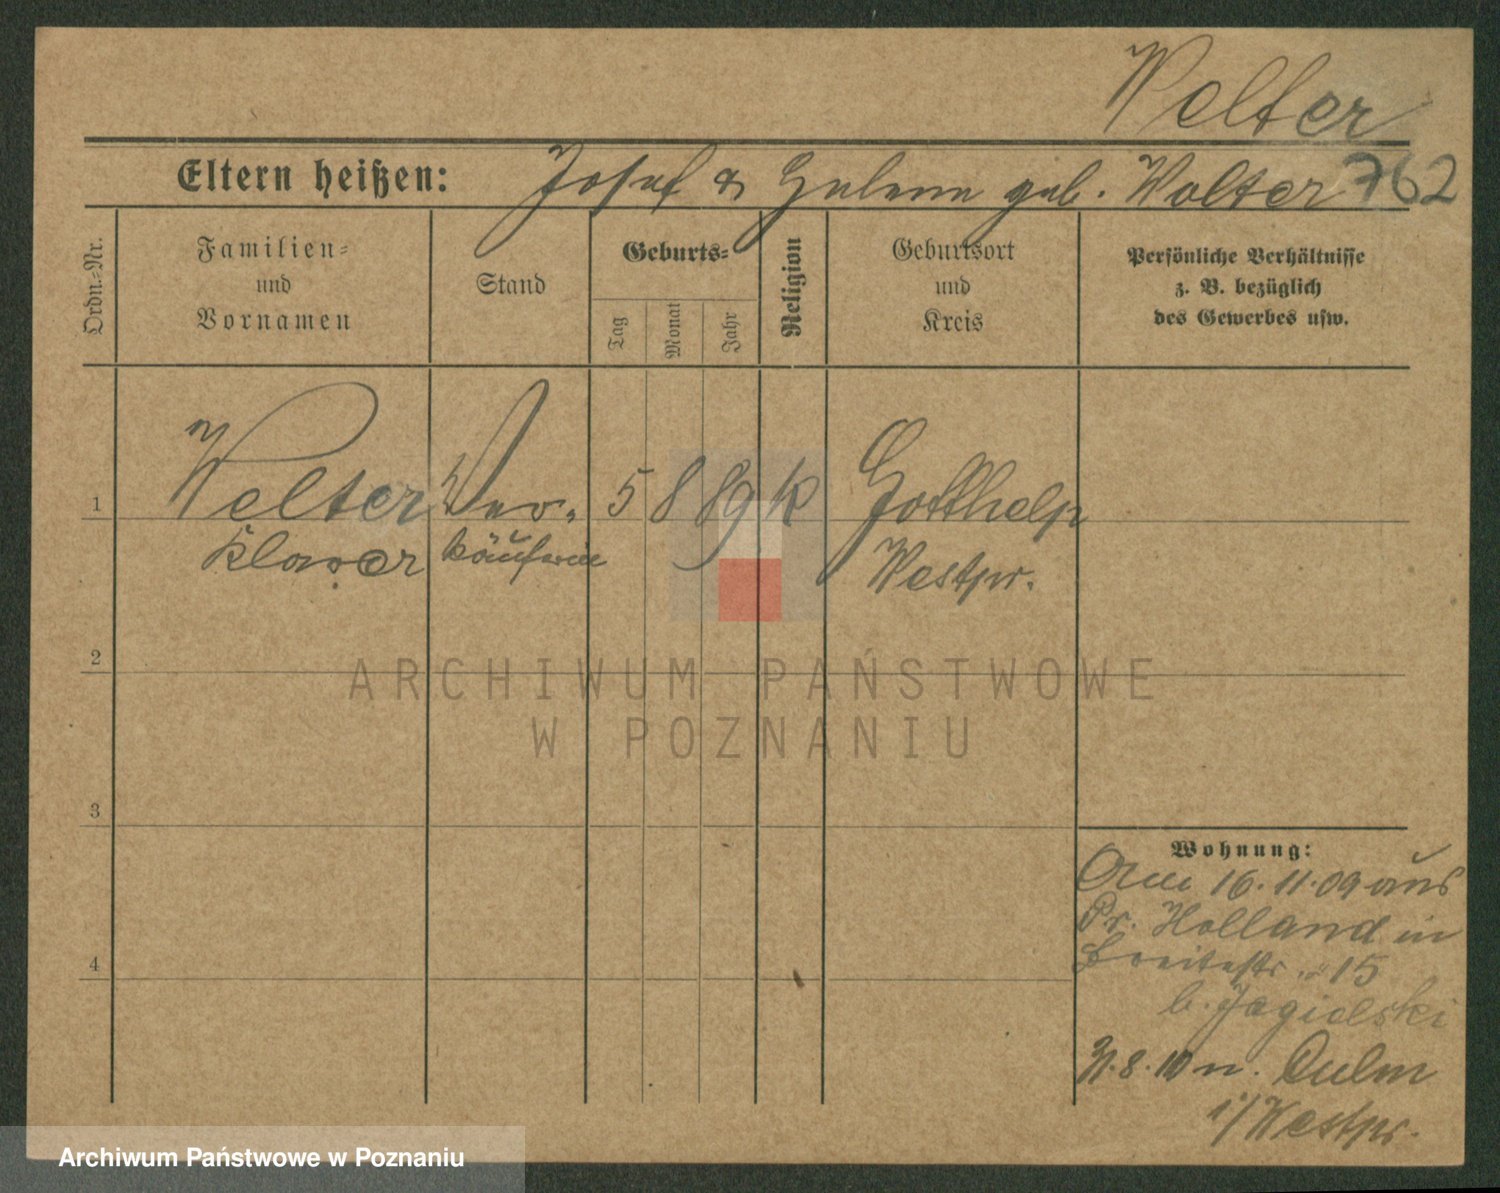 Welter
Eltern heißen: Josef & Helene geb. Wolter 762
Ordn.-Nr.
Familien- und Vornamen
Stand
Geburts-
Tag Monat Jahr
Religion
Geburtsort und Kreis
Persönliche Verhältnisse
z. B. bezüglich
des Gewerbes usw.
1 Welter Ver- 5 8 89 K Gotthelp
käuferin Westpr.
2
ARCHIWUM PAŃSTWOWE
W POZNANIU
3
Wohnung:
16.11.09 aus
Pr. Holland in
Breitestr. 15
b. Jagielski
8.10 n. Culm
i/Westpr.
4
Archiwum Państwowe w Poznaniu